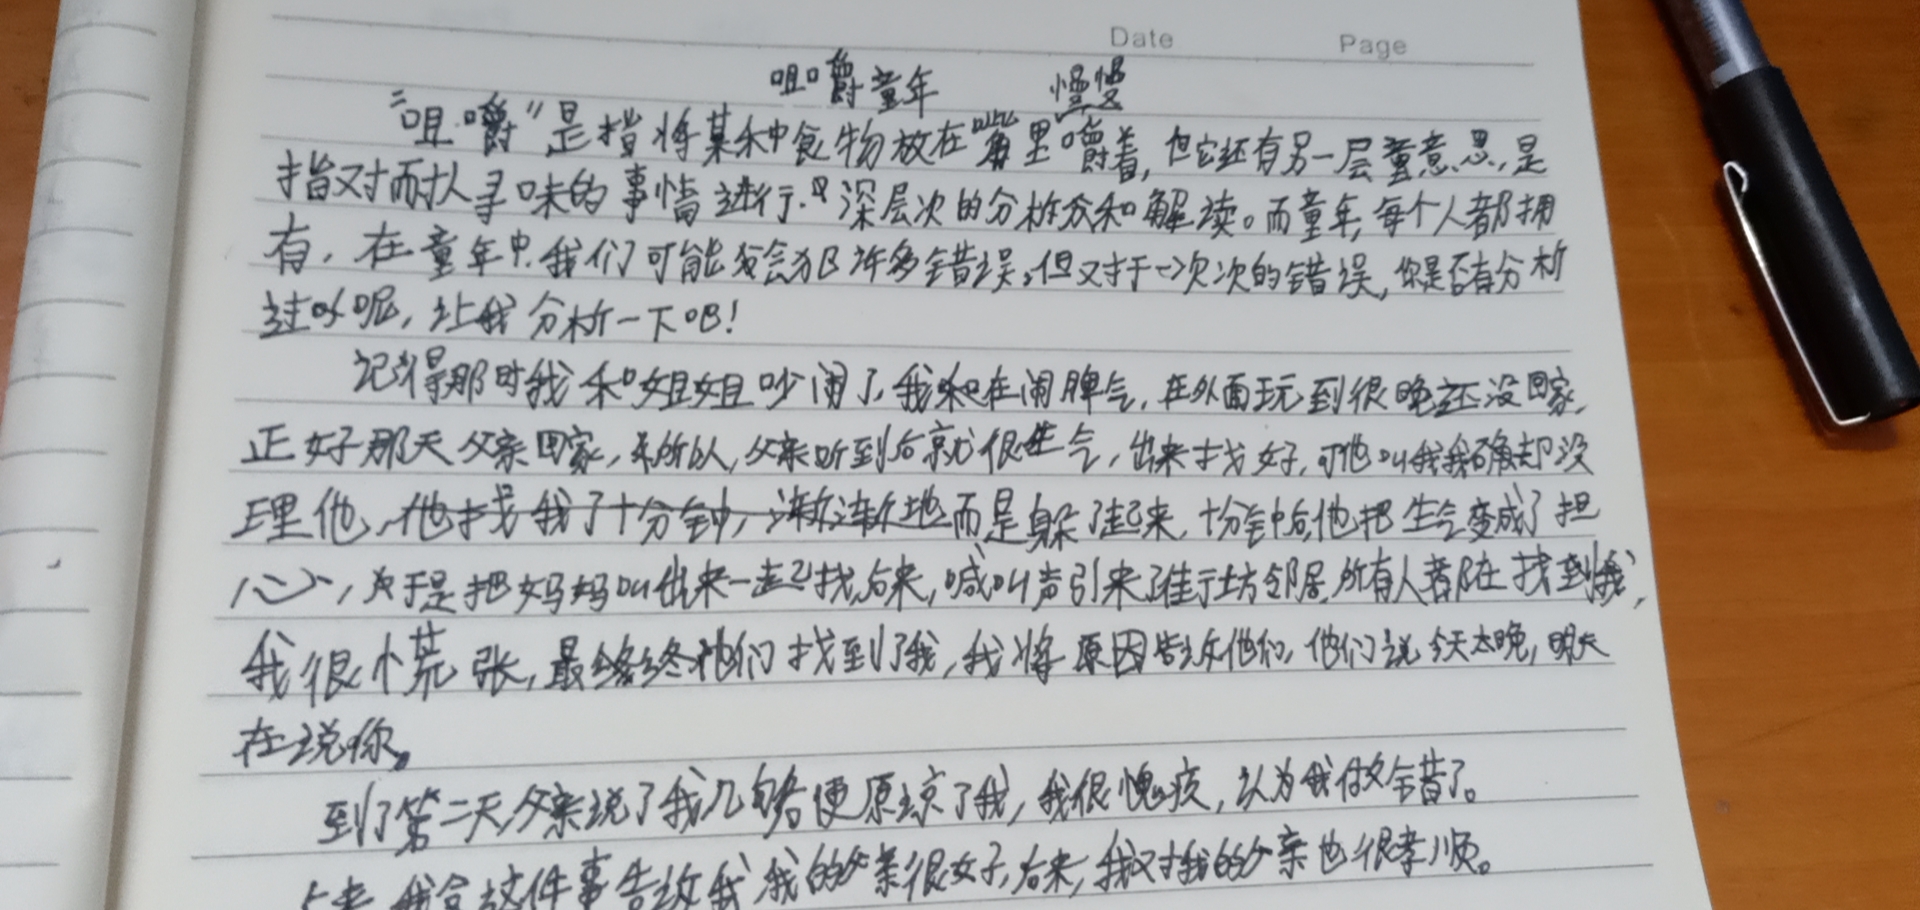 Date Page
咀嚼童年 慢慢
“咀嚼”是指将某种食物放在嘴里嚼着,但它还有另一层意思,是
指对耐人寻味的事情进行深层次的分析和解读。而童年,每个人都拥
有,在童年中,我们可能会犯许多错误,但对于一次次的错误,你是否有分析
过呢,让我分析一下吧!
记得那时我和姐姐吵闹了,我在闹脾气,在外面玩到很晚还没回家,
正好那天父亲回家,所以,父亲听到后就很生气,出来找好,可他叫我我却没
理他,而是躲了起来,十分钟后,他把生气变成了担
心,于是把妈妈叫出来一起找,后来,喊叫声引来了街坊邻居,所有人都在找到我,
我很慌张,最终他们找到了我,我将原因告诉他们,他们说今天太晚,明天
在说你。
到了第二天,父亲说了我几句便原谅了我,我很愧疚,认为我做错了。
我会这件事告诉我,我的父亲很好,后来,我对我的父亲也很孝顺。